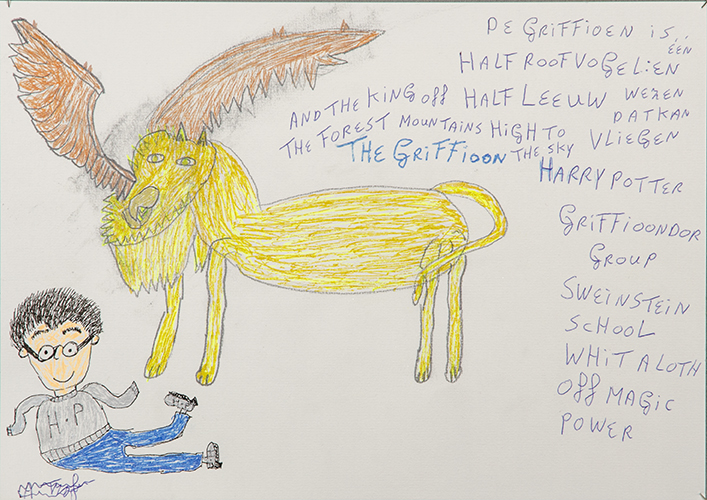 DE GRiFFiOEN iS..
ÉÉN
HALF ROOFVOGEL:EN
HALF LEEUW WEZEN
DATKAN
VLiEGEN
AND THE KiNG OFF
THE FOREST MOUNTAiNS HiGH TO
THE SKY
THE GRiFFiOON
HARRY POTTER
GRiFFiOONDOR
GROUP
SWEiNSTEiN
SCHOOL
WHiT A LOTH
OFF MAGiC
POWER
H.P